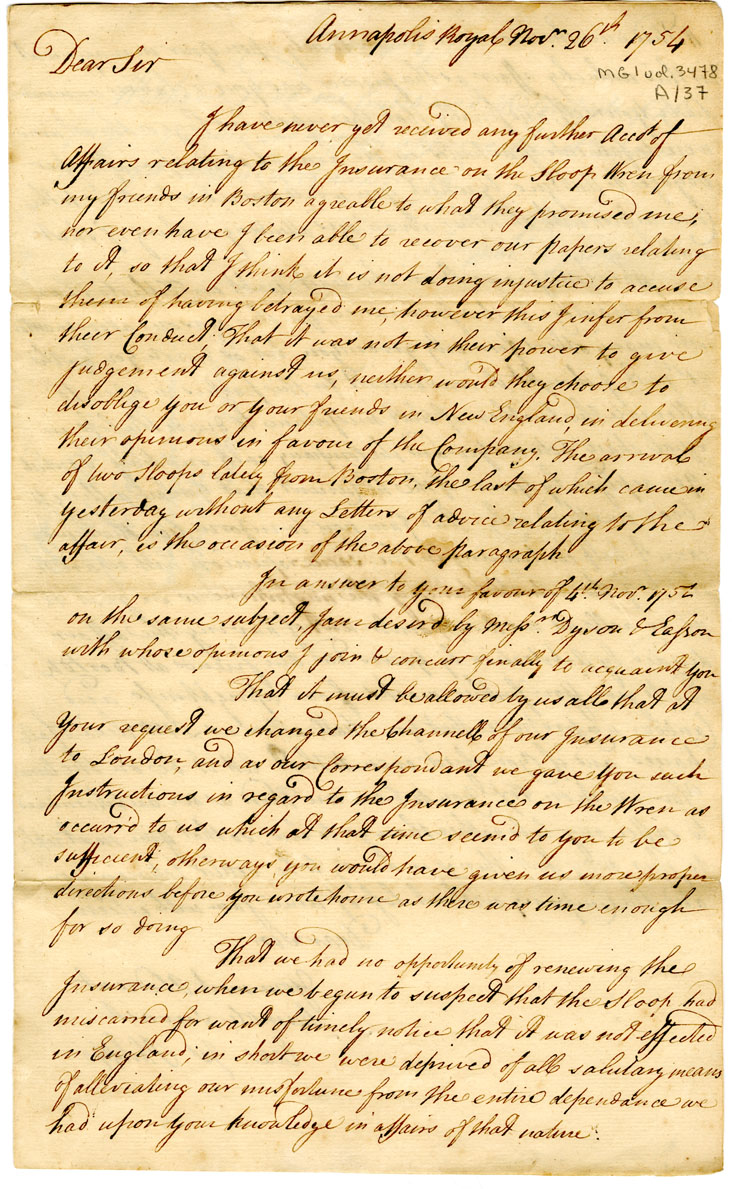 Annapolis Royal Novr. 26th. 1754
Dear Sir
MG1 vol. 3478
A/37
I have never yet received any further Accot of
Affairs relating to the Insurance on the Sloop Wren from
my friends in Boston agreable to what they promised me,
nor even have I been able to recover our papers relating
to it, so that I think it is not doing injustice to accuse
them of having betrayed me, however this I infer from
their Conduct, That it was not in their power to give
judgement against us, neither would they choose to
disoblige you or your friends in New England, in delivering
their opinions in favour of the Company. The arrival
of two Sloops lately from Boston, the last of which came in
yesterday without any Letters of advice relating to the
affair, is the occasion of the above paragraph
In answer to your favour of 4th Novr. 1754
on the same subject, I am desir'd by Messrs. Dyson & Easson
with whose opinions I join & concurr finally to acquaint you
That it must be allowed by us all that at
Your request we changed the Channell of our Insurance
to London, and as our Correspondant we gave you such
Instructions in regard to the Insurance on the Wren as
occurr'd to us which at that time seem'd to you to be
sufficient, otherways you would have given us more proper
directions before you wrote home as there was time enough
for so doing
That we had no opportunity of renewing the
Insurance, when we begun to suspect that the Sloop had
miscarried for want of timely notice that it was not effected
in England; in short we were deprived of all salutary means
of alleviating our misfortune from the entire dependance we
had upon your knowledge in affairs of that nature.